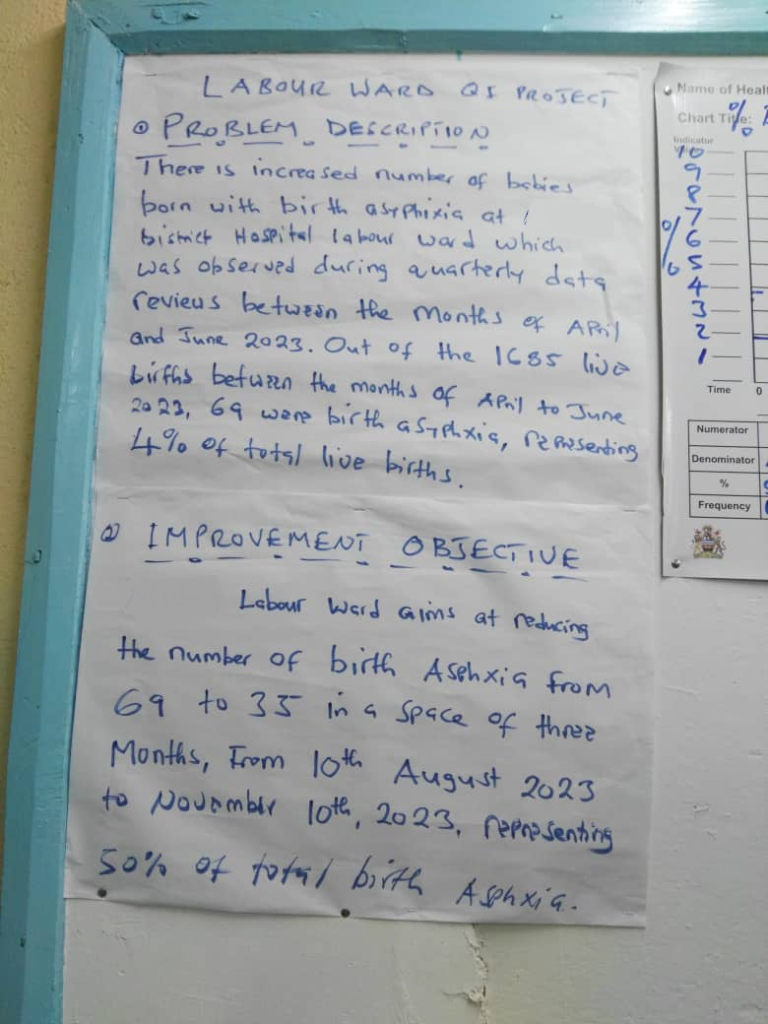 LABOUR WARD QI PROJECT
① PROBLEM DESCRIPTION
There is increased number of babies
born with birth asyphixia at
District Hospital labour ward which
was observed during quarterly data
reviews between the months of April
and June 2023. Out of the 1685 live
births between the months of April to June
2023, 69 were birth asyphxia, representing
4% of total live births.
② IMPROVEMENT OBJECTIVE
Labour Ward aims at reducing
the number of birth Asphxia from
69 to 35 in a space of three
Months, From 10th August 2023
to November 10th, 2023, representing
50% of total birth Asphxia.
Name of Healt
Chart Title: %
Indicator
10
9
8
7
6
5
4
3
2
1
%
Time 0
Numerator
Denominator
%
Frequency